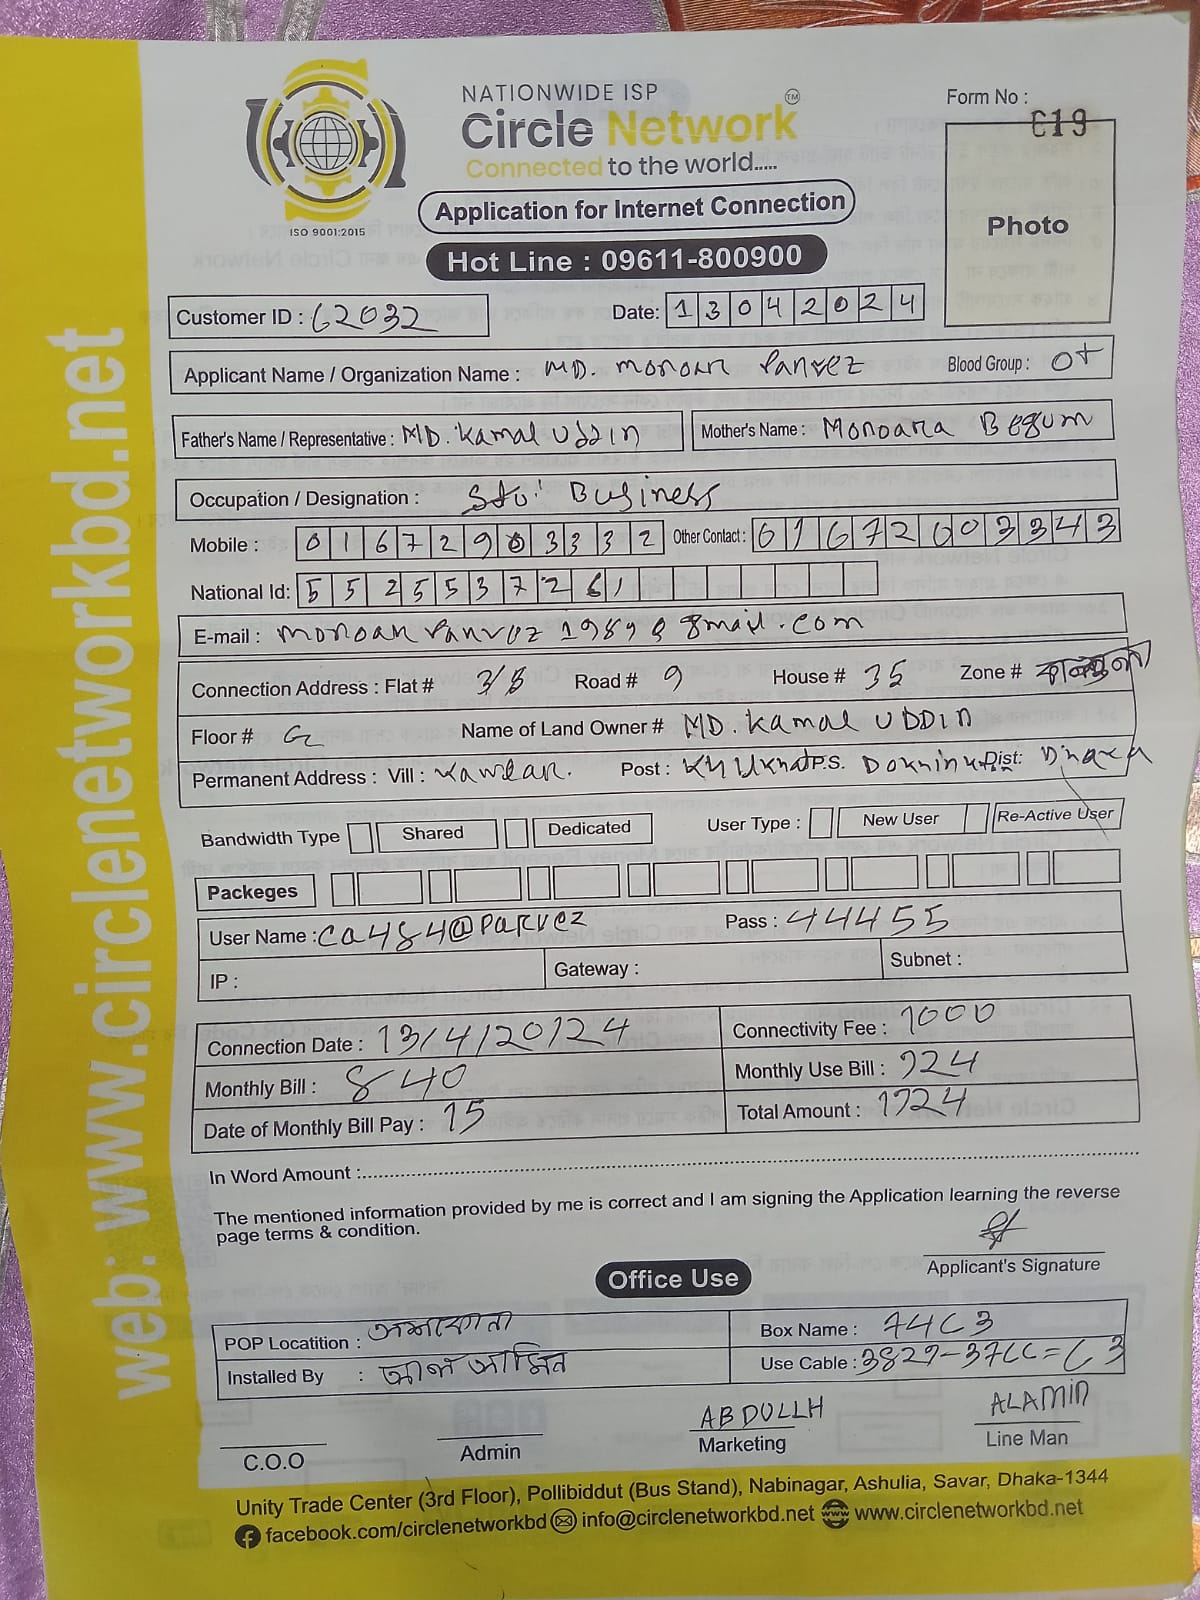 NATIONWIDE ISP
Circle Network TM
Connected to the world.....
ISO 9001:2015
Form No :
619
Photo
Application for Internet Connection
Hot Line : 09611-800900
Customer ID : 62032
Date: 13042024
Applicant Name / Organization Name : MD. monoar Parvez Blood Group : O+
Father's Name / Representative : MD. Kamal Uddin Mother's Name : Monoara Begum
Occupation / Designation : Business
Mobile : 01672903332 Other Contact : 01672003343
National Id: 5525537261
E-mail : monoarparvez1989@gmail.com
Connection Address : Flat # 3/B Road # 9 House # 35 Zone #
Floor # G Name of Land Owner # MD. Kamal UDDIN
Permanent Address : Vill : Kawlar. Post : P.S. Dist: Dhaka
Bandwidth Type Shared Dedicated User Type : New User Re-Active User
Packeges
User Name : ca484@parvez Pass : 44455
IP : Gateway : Subnet :
Connection Date : 13/4/20/24 Connectivity Fee : 1000
Monthly Bill : 840 Monthly Use Bill : 924
Date of Monthly Bill Pay : 15 Total Amount : 1924
In Word Amount :
The mentioned information provided by me is correct and I am signing the Application learning the reverse
page terms & condition.
Applicant's Signature
Office Use
POP Locatition : Box Name : 74C3
Installed By : আল আমিন Use Cable :
C.O.O
Admin
ABDULLH
Marketing
ALAMIN
Line Man
Unity Trade Center (3rd Floor), Pollibiddut (Bus Stand), Nabinagar, Ashulia, Savar, Dhaka-1344
facebook.com/circlenetworkbd info@circlenetworkbd.net www.circlenetworkbd.net
web: www.circlenetworkbd.net